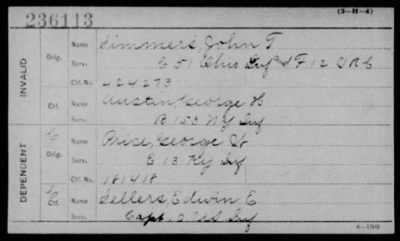 236113
(3-H-4)
INVALID
Orig.
Name Simmers, John T
Serv. E 51 Ohio Inf & F 12 VRC
Ctf. No. 424273
Ctf.
Name Austin George H
Serv. B 153 NY Inf
DEPENDENT
C
Orig.
Name Price, George W
Serv. E 13 Ky Inf
Ctf. No. 181418
C
Ctf.
Name Sellers, Edwin E
Serv. Capt. 2 US Inf